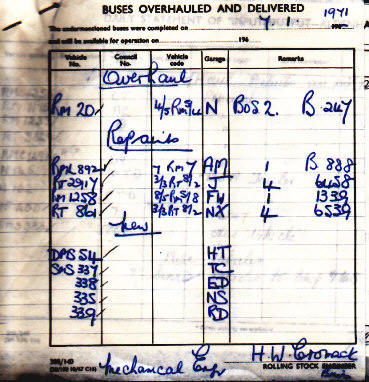 BUSES OVERHAULED AND DELIVERED
The undermentioned buses were completed on 7.1 1971
and will be available for operation on 196
Vehicle No. Council No. Vehicle code Garage Remarks
Overhaul
RM 20 N BOS 2. B 247
Repairs
RML 892 7 RM 7 AM 1 B 888
RT 2917 3/3 RT 8/2 J 4 6458
RM 1258 8/5 RM 5/8 FW 1 1339
RT 861 3/3 RT 8/2 NX 4 6539
New
DMS 54 HT
SMS 337 TC
338 ED
335 NS
339 RD
Mechanical Engr
ROLLING STOCK ENGINEER